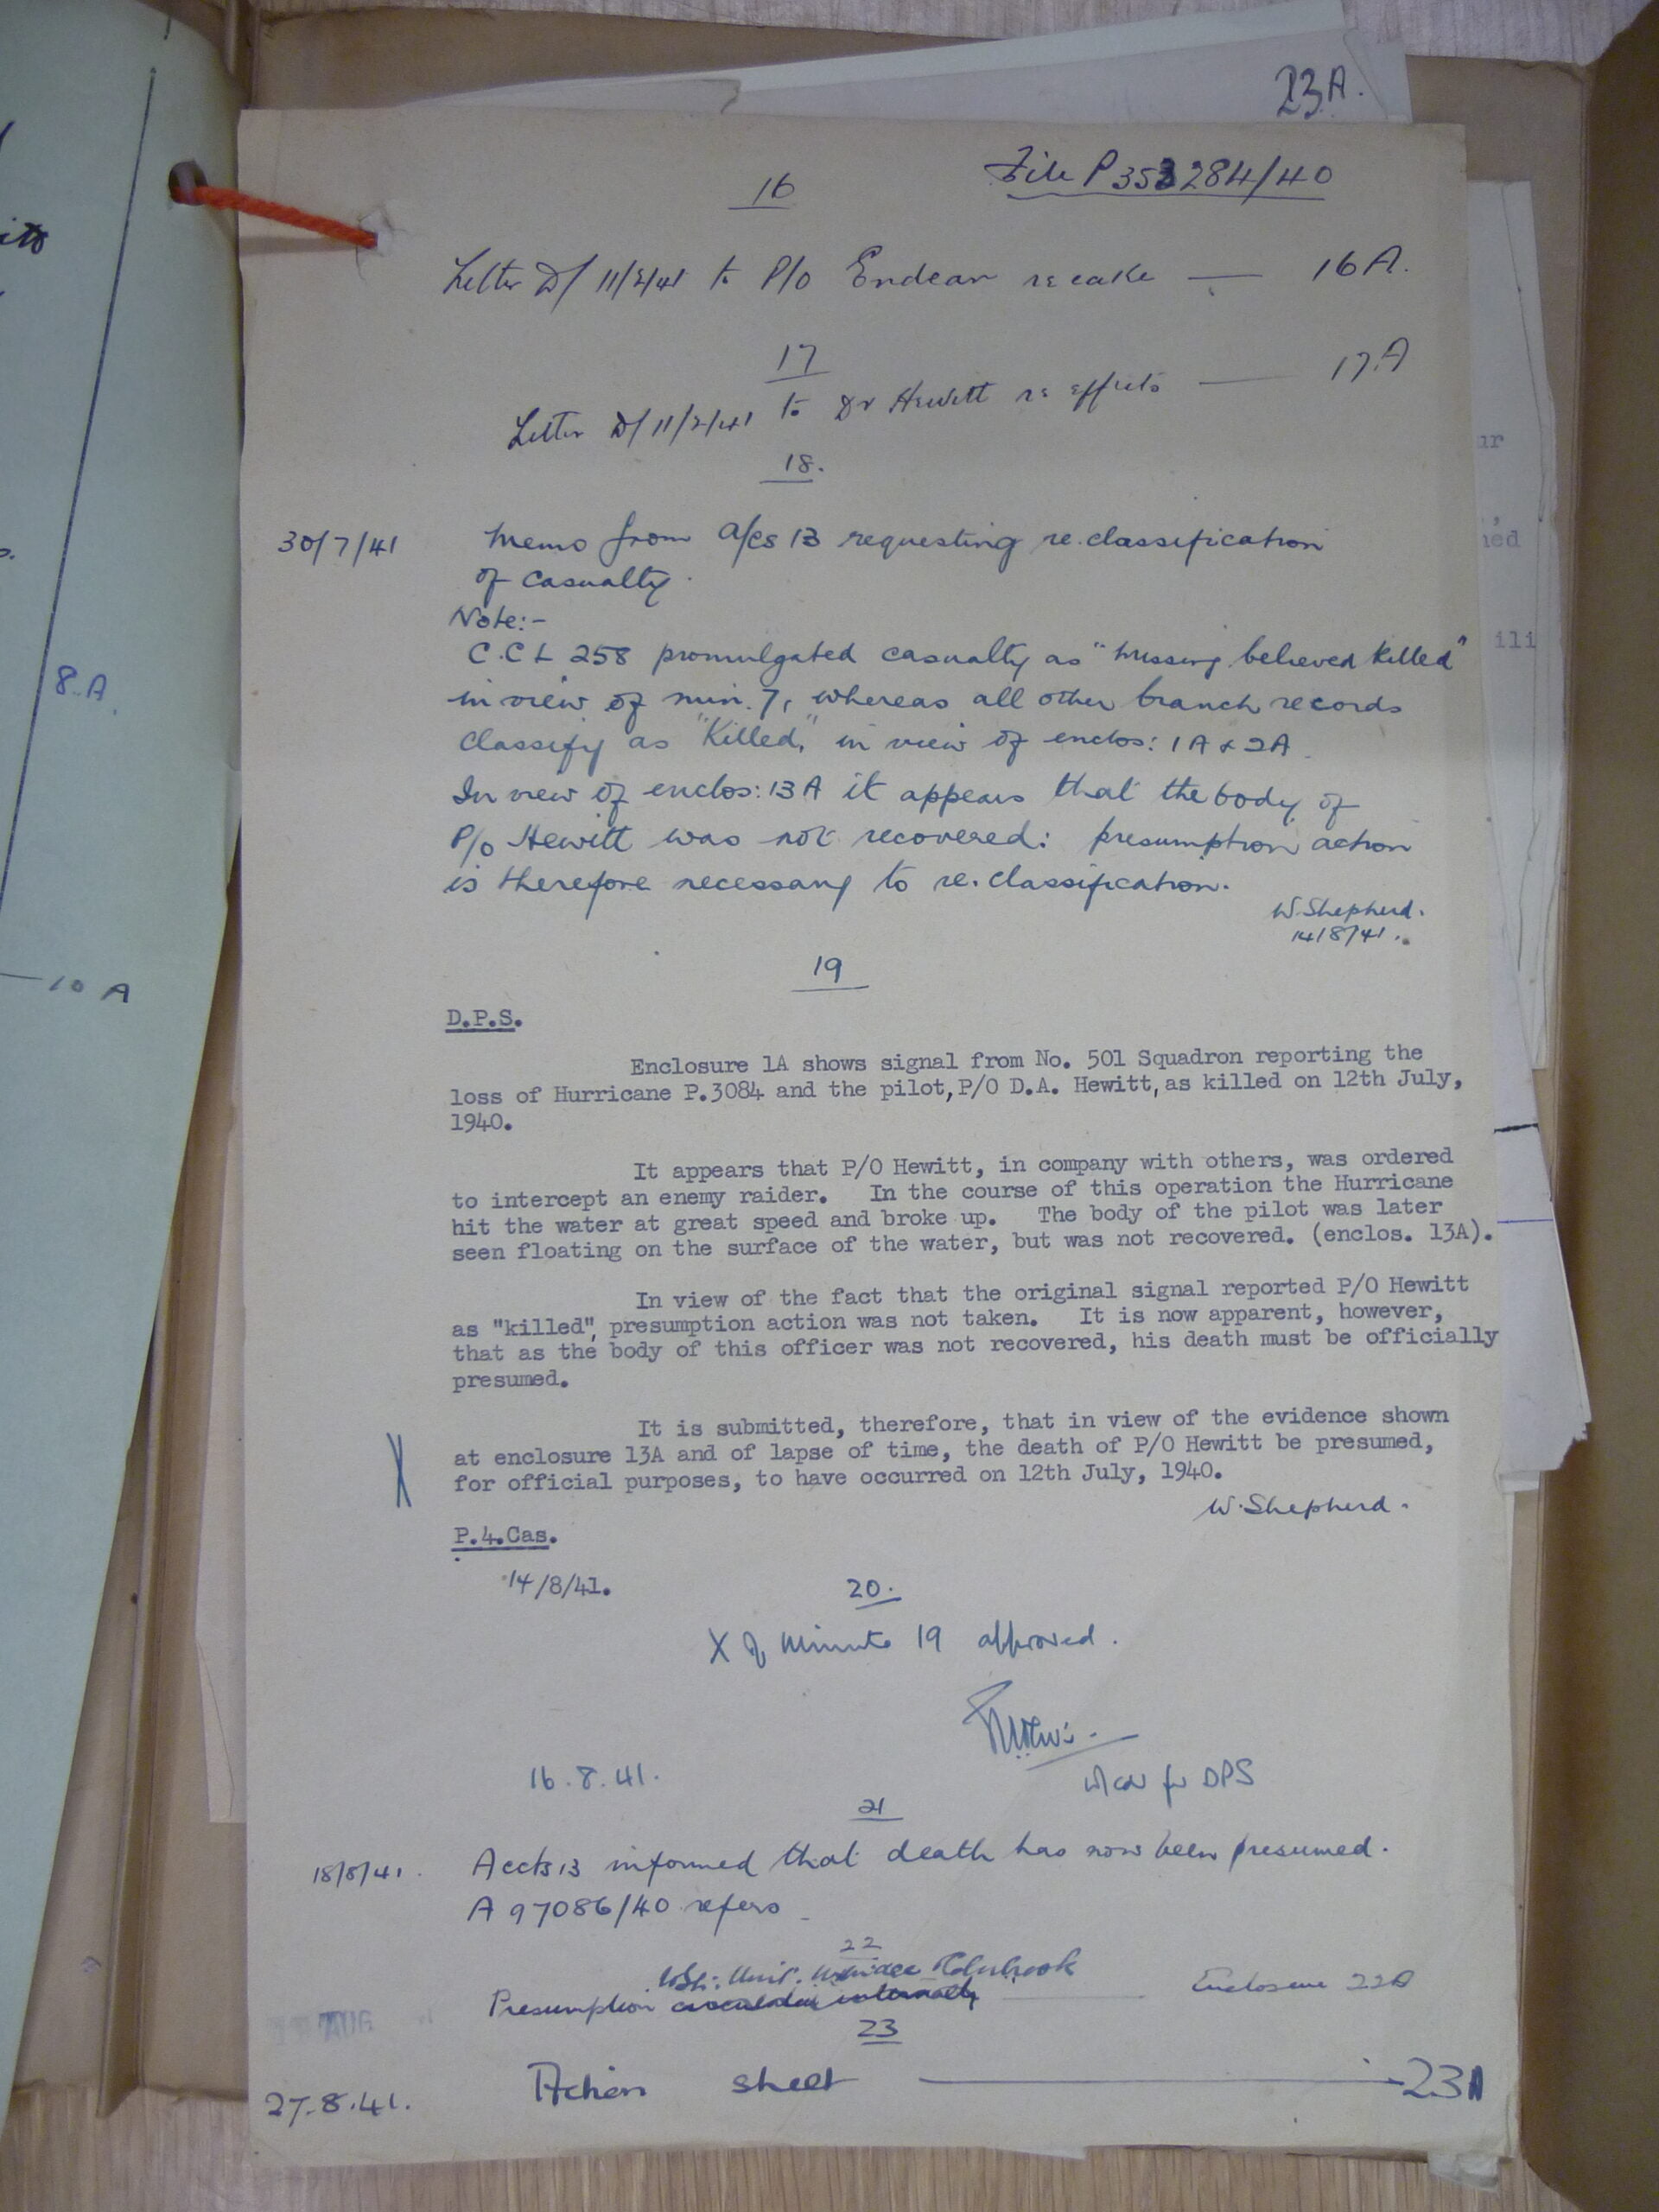 23A.
File P353284/40
16
Letter D/ 11/2/41 to P/O Endean re cake — 16A.
17
Letter D/ 11/2/41 to Dr Hewitt re effects — 17A
18.
30/7/41 Memo from a/cs 13 requesting re.classification
of casualty.
Note:-
C.C L 258 promulgated casualty as "missing believed killed"
in view of min. 7, whereas all other branch records
classify as "Killed," in view of enclos: 1A & 2A.
In view of enclos: 13A it appears that the body of
P/O Hewitt was not recovered: presumption action
is therefore necessary to re.classification.
W. Shepherd.
14/8/41.
8.A
10 A
19
D.P.S.
Enclosure 1A shows signal from No. 501 Squadron reporting the
loss of Hurricane P.3084 and the pilot, P/O D.A. Hewitt, as killed on 12th July,
1940.
It appears that P/O Hewitt, in company with others, was ordered
to intercept an enemy raider. In the course of this operation the Hurricane
hit the water at great speed and broke up. The body of the pilot was later
seen floating on the surface of the water, but was not recovered. (enclos. 13A).
In view of the fact that the original signal reported P/O Hewitt
as "killed", presumption action was not taken. It is now apparent, however,
that as the body of this officer was not recovered, his death must be officially
presumed.
It is submitted, therefore, that in view of the evidence shown
X at enclosure 13A and of lapse of time, the death of P/O Hewitt be presumed,
for official purposes, to have occurred on 12th July, 1940.
W. Shepherd.
P.4.Cas.
14/8/41.
20.
X of Minute 19 approved.
16.8.41.
W/Cdr for DPS
21
18/8/41. Accts 13 informed that death has now been presumed.
A 97086/40 refers
22
Presumption — Enclosure 22A
AUG
23
27.8.41. Action sheet — 23A